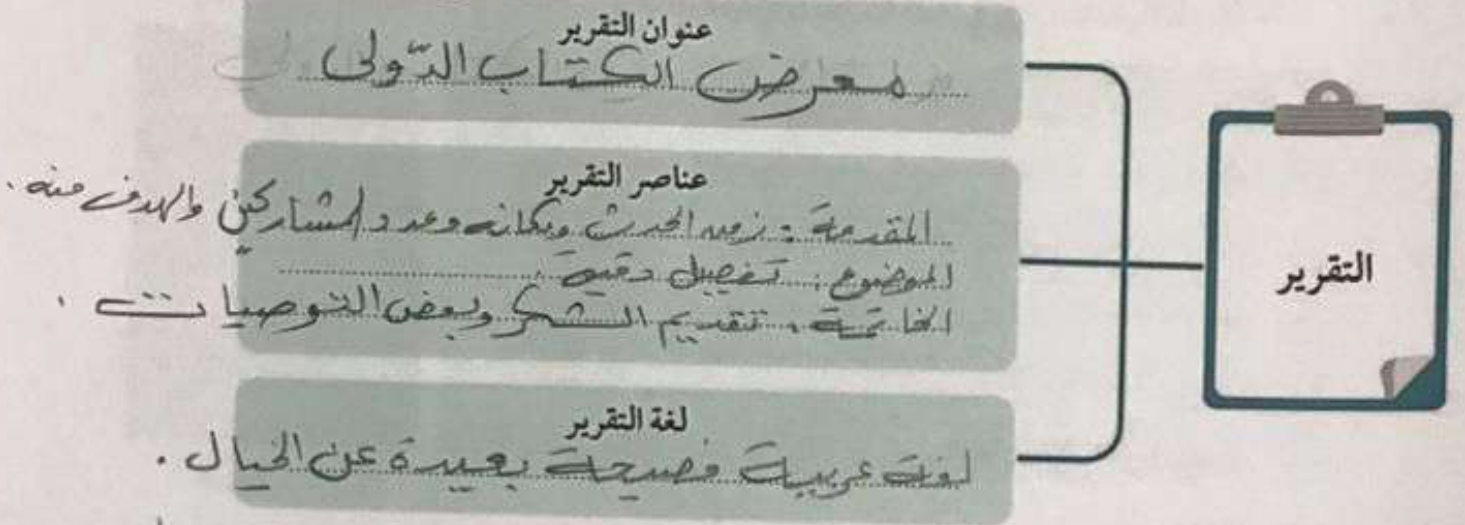 عنوان التقرير
معرض الكتاب الدّولى
عناصر التقرير
المقدمة : زمن الحدث ومكانه وعدد المشاركين والهدف منه .
الموضوع : تفصيل دقيق .
الخاتمة : تقديم الشكر وبعض التوصيات .
التقرير
لغة التقرير
لغة عربية فصيحة بعيدة عن الخيال .